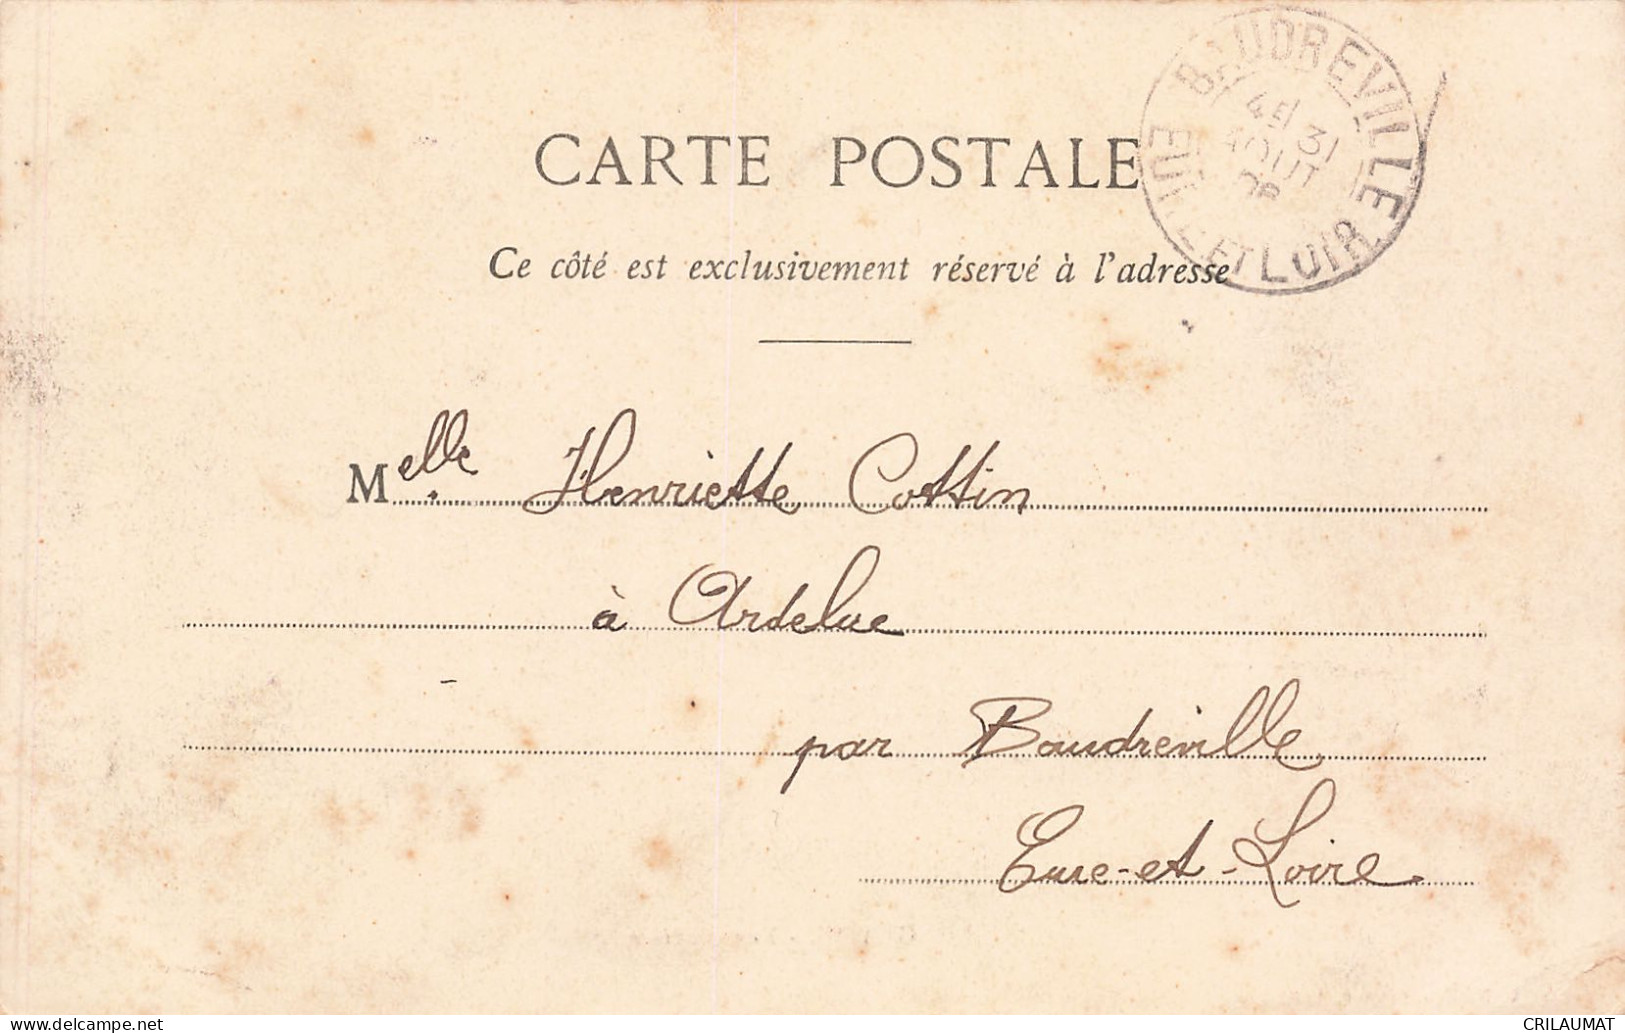 BAUDREVILLE
4E 31
AOUT
06
EURE-ET LOIR
CARTE POSTALE
Ce côté est exclusivement réservé à l'adresse
Melle Henriette Cottin
à Ardelue
par Baudreville
Eure-et-Loire.
CRILAUMAT